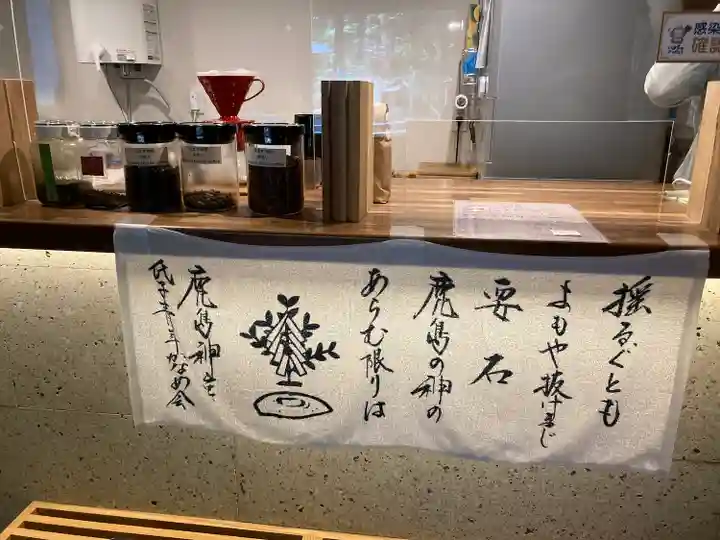 揺るぐとも
よもや抜けまじ
要石
鹿島の神の
あらむ限りは
鹿島神宮
氏子青年かなめ会
感染